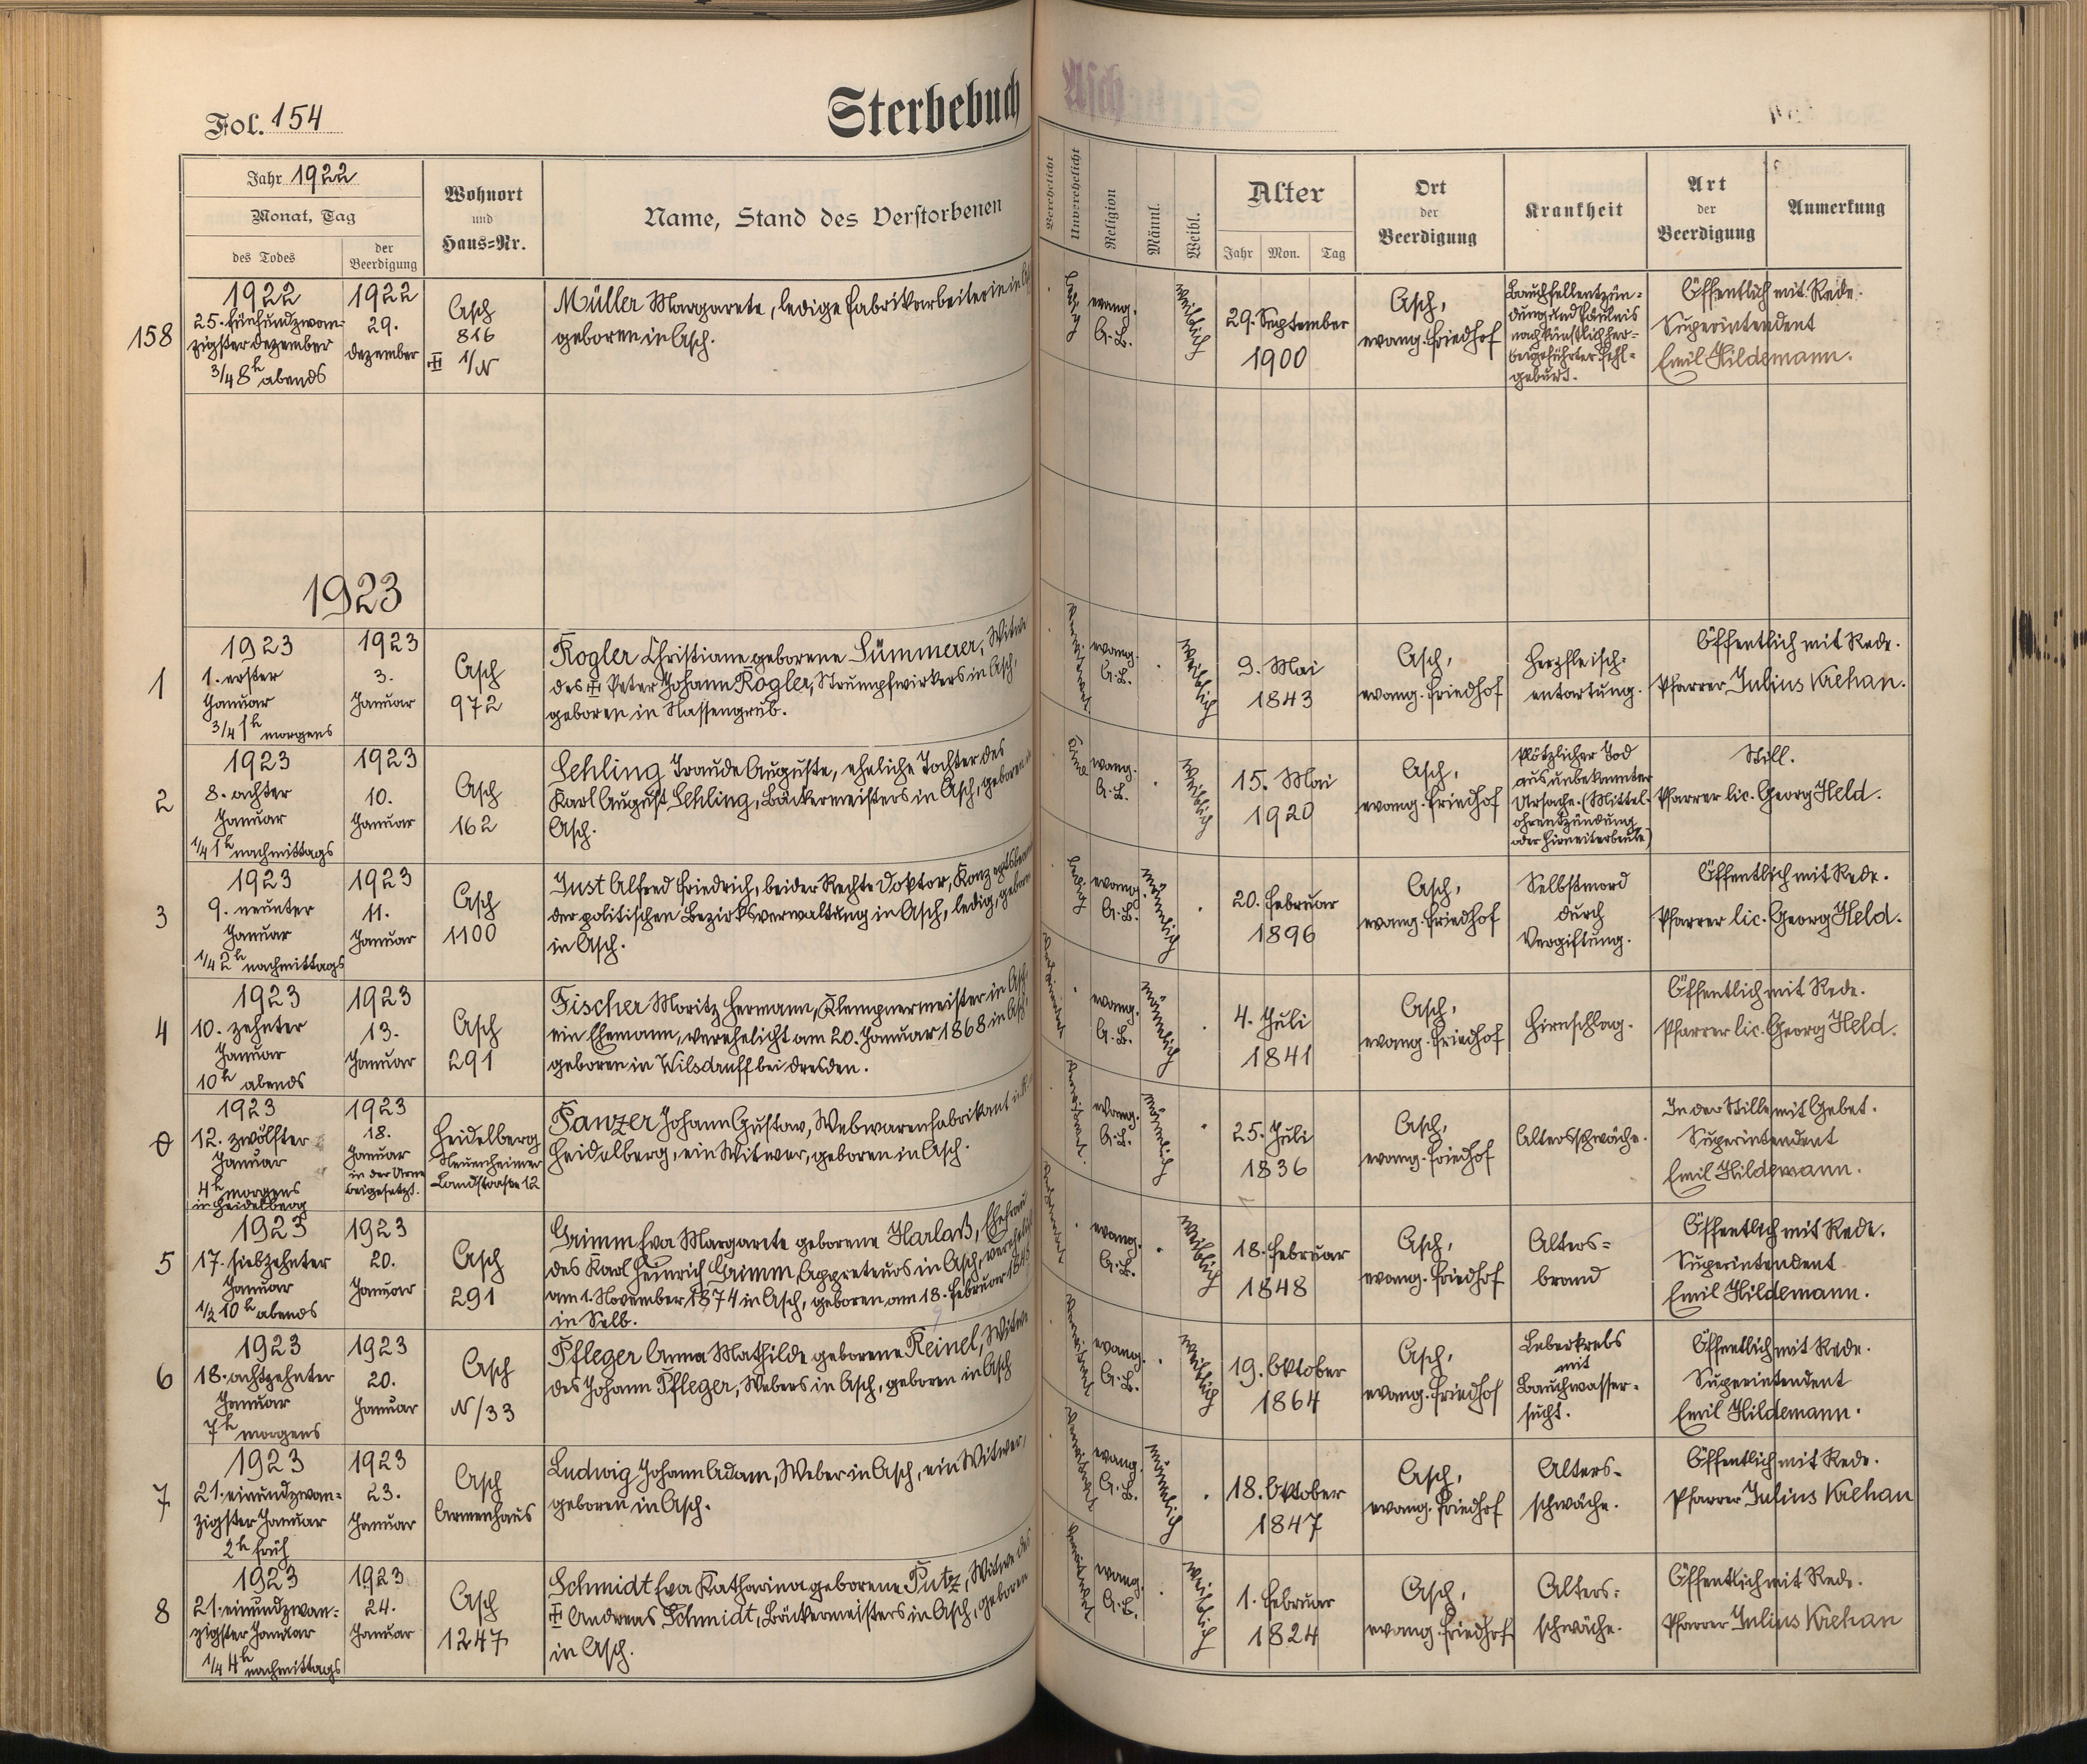 Fol. 154
Sterbebuch
Jahr 1922
Monat, Tag
des Todes
der
Beerdigung
Wohnort
und
Haus=Nr.
Name, Stand des Verstorbenen
Verehelicht
Unverehelicht
Religion
Männl.
Weibl.
Alter
Jahr Mon. Tag
Ort
der
Beerdigung
Krankheit
Art
der
Beerdigung
Anmerkung
158
1922
25. fünfundzwan=
zigster Dezember
3/4 8h abends
1922
29.
Dezember
Asch
816
1/N
Müller Margarete, ledige Fabrikarbeiterin in
geboren in Asch.
ledig
evang.
A.B.
weiblich
29. September
1900
Asch,
evang. Friedhof
Bauchfellentzün=
dung und Fäulnis
nach künstlich her=
beigeführter Fehl=
geburt.
Öffentlich mit Rede.
Superintendent
Emil Hildemann.
1923
1
1923
1. erster
Januar
3/4 1h morgens
1923
3.
Januar
Asch
972
Rogler Christiane geborene Sümmerer, Witwe
des Peter Johann Rogler, Strumpfwirkers in Asch,
geboren in Nassengrub.
verwitwet
evang.
A.B.
weiblich
9. Mai
1843
Asch,
evang. Friedhof
Herzfleisch=
entartung.
Öffentlich mit Rede.
Pfarrer Julius Krehan.
2
1923
8. achter
Januar
1/4 1h nachmittags
1923
10.
Januar
Asch
162
Sehling Traude Auguste, eheliche Tochter des
Karl August Sehling, Bäckermeisters in Asch, geboren in
Asch.
evang.
A.B.
weiblich
15. Mai
1920
Asch,
evang. Friedhof
Plötzlicher Tod
aus unbekannter
Ursache. (Mittel=
ohrentzündung
oder Hirneiterbeule)
Still.
Pfarrer lic. Georg Held.
3
1923
9. neunter
Januar
1/4 2h nachmittags
1923
11.
Januar
Asch
1100
Just Alfred Friedrich, beider Rechte Doktor,
der politischen Bezirksverwaltung in Asch, ledig, geboren
in Asch.
ledig
evang.
A.B.
männlich
20. Februar
1896
Asch,
evang. Friedhof
Selbstmord
durch
Vergiftung.
Öffentlich mit Rede.
Pfarrer lic. Georg Held.
4
1923
10. zehnter
Januar
10h abends
1923
13.
Januar
Asch
291
Fischer Moritz Hermann, Klempnermeister in Asch,
ein Ehemann, verehelicht am 20. Januar 1868 in Asch,
geboren in Wilsdruff bei Dresden.
evang.
A.B.
männlich
4. Juli
1841
Asch,
evang. Friedhof
Hirnschlag.
Öffentlich mit Rede.
Pfarrer lic. Georg Held.
0
1923
12. zwölfter
Januar
4h morgens
in Heidelberg
1923
18.
Januar
in der Urne
beigesetzt.
Heidelberg
Neuenheimer
Landstraße 12
Panzer Johann Gustav, Webwarenfabrikant in
Heidelberg, ein Witwer, geboren in Asch.
verwitwet.
evang.
A.B.
männlich
25. Juli
1836
Asch,
evang. Friedhof
Altersschwäche.
In der Stille mit Gebet.
Superintendent
Emil Hildemann.
5
1923
17. siebzehnter
Januar
1/2 10h abends
1923
20.
Januar
Asch
291
Grimm Eva Margarete geborene Harlaß, Ehefrau
des Karl Heinrich Grimm, Appreteurs in Asch, verehelicht
am 1. November 1874 in Asch, geboren am 18. Februar 1848
in Selb.
evang.
A.B.
weiblich
18. Februar
1848
Asch,
evang. Friedhof
Alters=
brand
Öffentlich mit Rede.
Superintendent
Emil Hildemann.
6
1923
18. achtzehnter
Januar
7h morgens
1923
20.
Januar
Asch
N/33
Pfleger Anna Mathilde geborene Reinel, Witwe
des Johann Pfleger, Webers in Asch, geboren in Asch
verwitwet
evang.
A.B.
weiblich
19. Oktober
1864
Asch,
evang. Friedhof
Leberkrebs
mit
Bauchwasser=
sucht.
Öffentlich mit Rede.
Superintendent
Emil Hildemann.
7
1923
21. einundzwan=
zigster Januar
2h früh
1923
23.
Januar
Asch
Armenhaus
Ludwig Johann Adam, Weber in Asch, ein Witwer,
geboren in Asch.
verwitwet
evang.
A.B.
männlich
18. Oktober
1847
Asch,
evang. Friedhof
Alters=
schwäche.
Öffentlich mit Rede.
Pfarrer Julius Krehan
8
1923
21. einundzwan=
zigster Januar
1/4 4h nachmittags
1923
24.
Januar
Asch
1247
Schmidt Eva Katharina geborene Putz, Witwe des
Andreas Schmidt, Bäckermeisters in Asch, geboren
in Asch.
verwitwet
evang.
A.B.
weiblich
1. Februar
1824
Asch,
evang. Friedhof
Alters=
schwäche.
Öffentlich mit Rede.
Pfarrer Julius Krehan